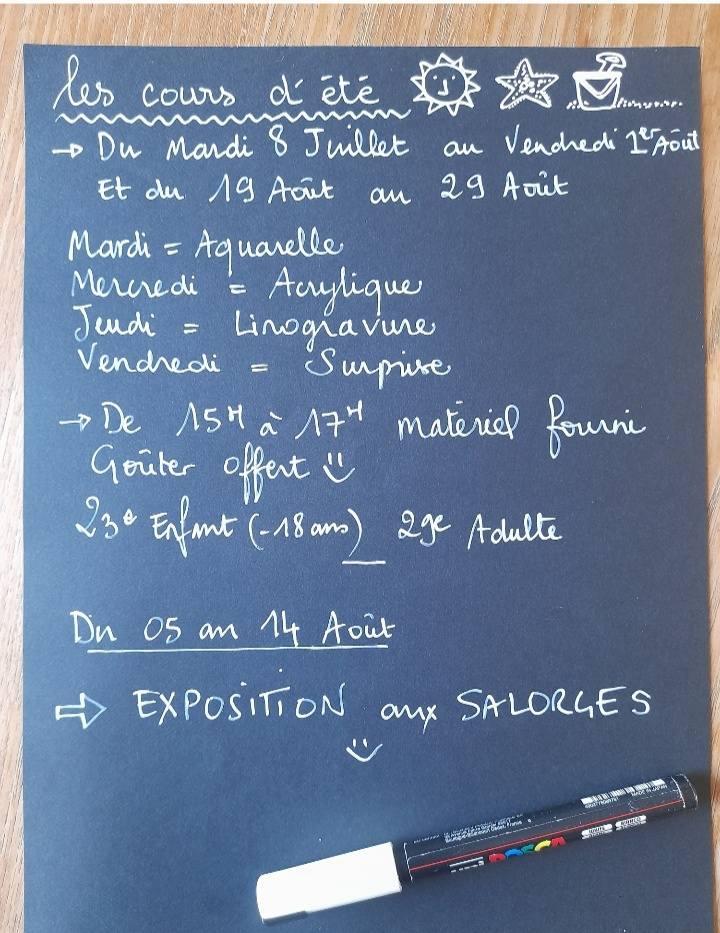 les cours d'été
→ Du Mardi 8 Juillet au Vendredi 1er Août
Et du 19 Août au 29 Août
Mardi = Aquarelle
Mercredi = Acrylique
Jeudi = Linogravure
Vendredi = Surprise
→ De 15H à 17H matériel fourni
Goûter offert
23€ Enfant (-18 ans) 29€ Adulte
Du 05 au 14 Août
⇨ EXPOSITION aux SALORGES
uni POSCA
MADE IN JAPAN